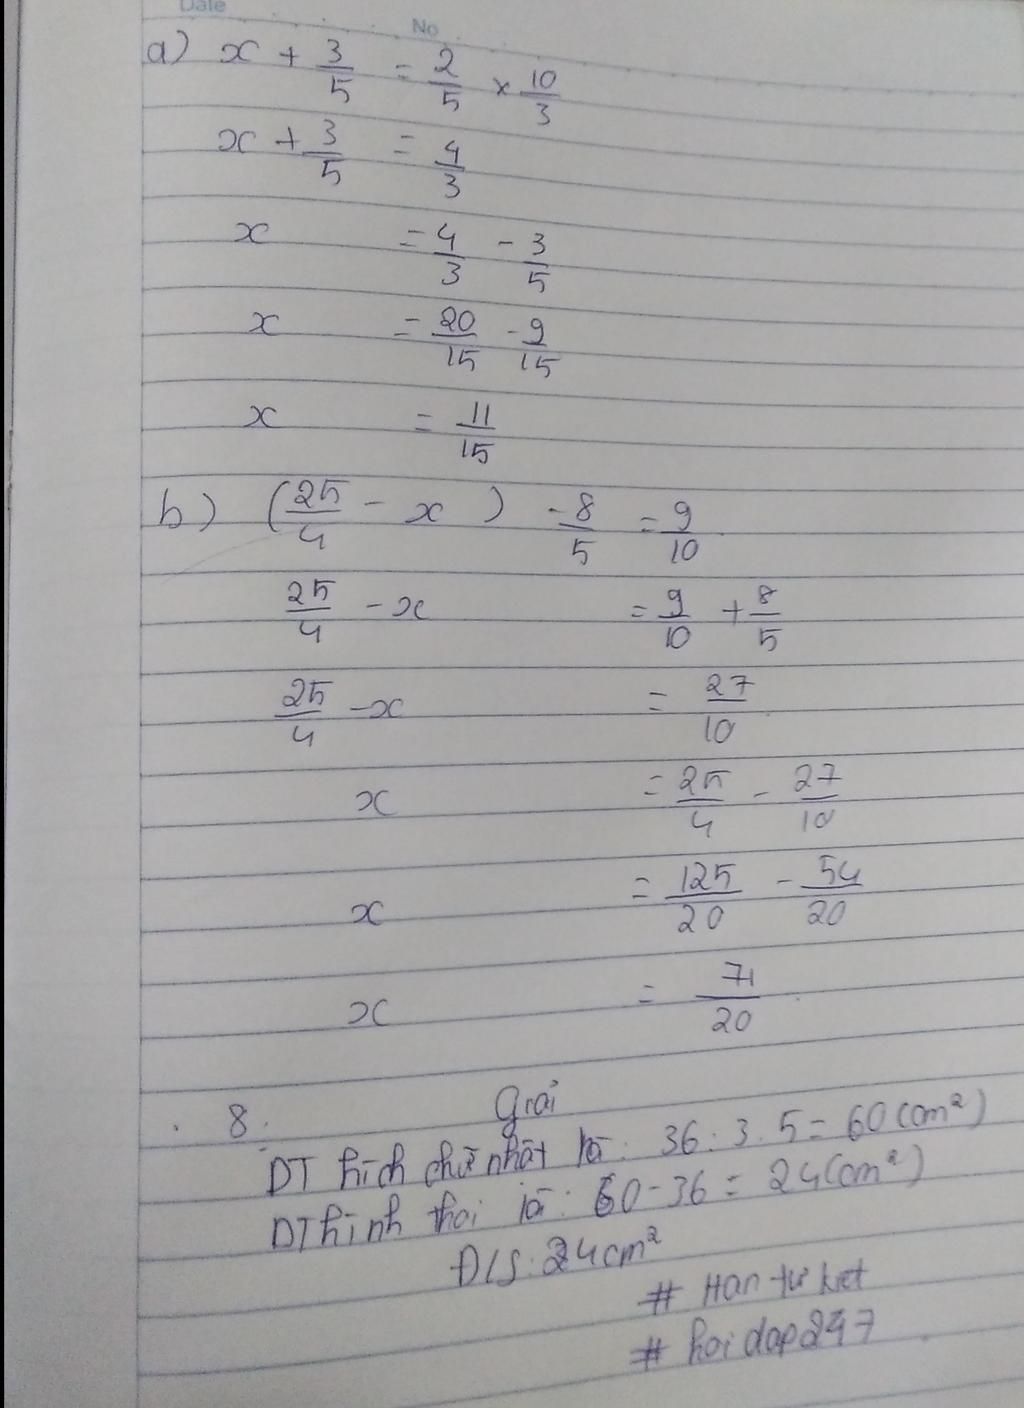 Date
No
a) x + 3/5 = 2/5 × 10/3
x + 3/5 = 4/3
x = 4/3 - 3/5
x = 20/15 - 9/15
x = 11/15
b) (25/4 - x) - 8/5 = 9/10
25/4 - x = 9/10 + 8/5
25/4 - x = 27/10
x = 25/4 - 27/10
x = 125/20 - 54/20
x = 71/20
8. Giải
DT hích chữ nhật là: 36 : 3 . 5 = 60 (cm²)
DT hình thoi là: 60 - 36 = 24 (cm²)
Đ/S: 24 cm²
# Han tư kiet
# hoi dap 247